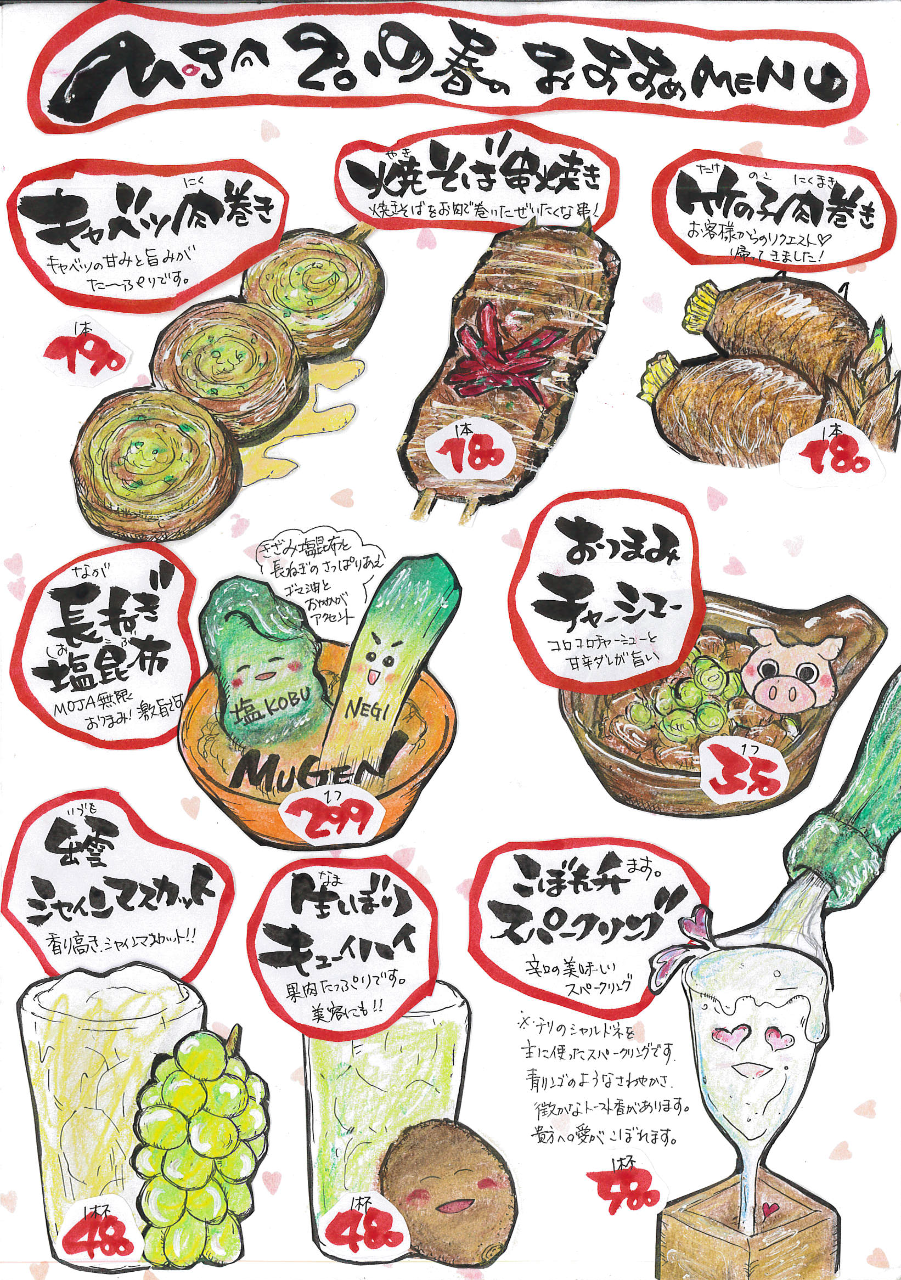 MOJA 2019春のおすすめMENU
にく
キャベツ肉巻き
キャベツの甘みと旨みが
た〜っぷりです。
1本
190
やき
焼そば串焼き
焼きそばをお肉で巻いたぜいたくな串!
1本
180
たけ のこ にくまき
竹の子肉巻き
お客様からのリクエスト♡
帰ってきました!
1本
180
なが
長ねぎ
しお こぶ
塩昆布
MOJA無限
おつまみ!激旨
きざみ塩昆布と
長ねぎのさっぱりあえ
ゴマ油と
おかかが
アクセント
塩KOBU
NEGI
MUGEN
1つ
299
おつまみ
チャーシュー
コロコロチャーシューと
甘辛ダレが旨い
1つ
350
いづも
出雲
シャインマスカット
香り高き、シャインマスカット!!
1杯
480
なま
生しぼり
キューイハイ
果肉たっぷりです。
美容にも!!
1杯
480
こぼれます。
スパークリング
辛口の美味しい
スパークリング
※チリのシャルドネを
主に使ったスパークリングです。
青リンゴのようなさわやかさ、
微かなトースト香があります。
貴方への愛がこぼれます。
1杯
580